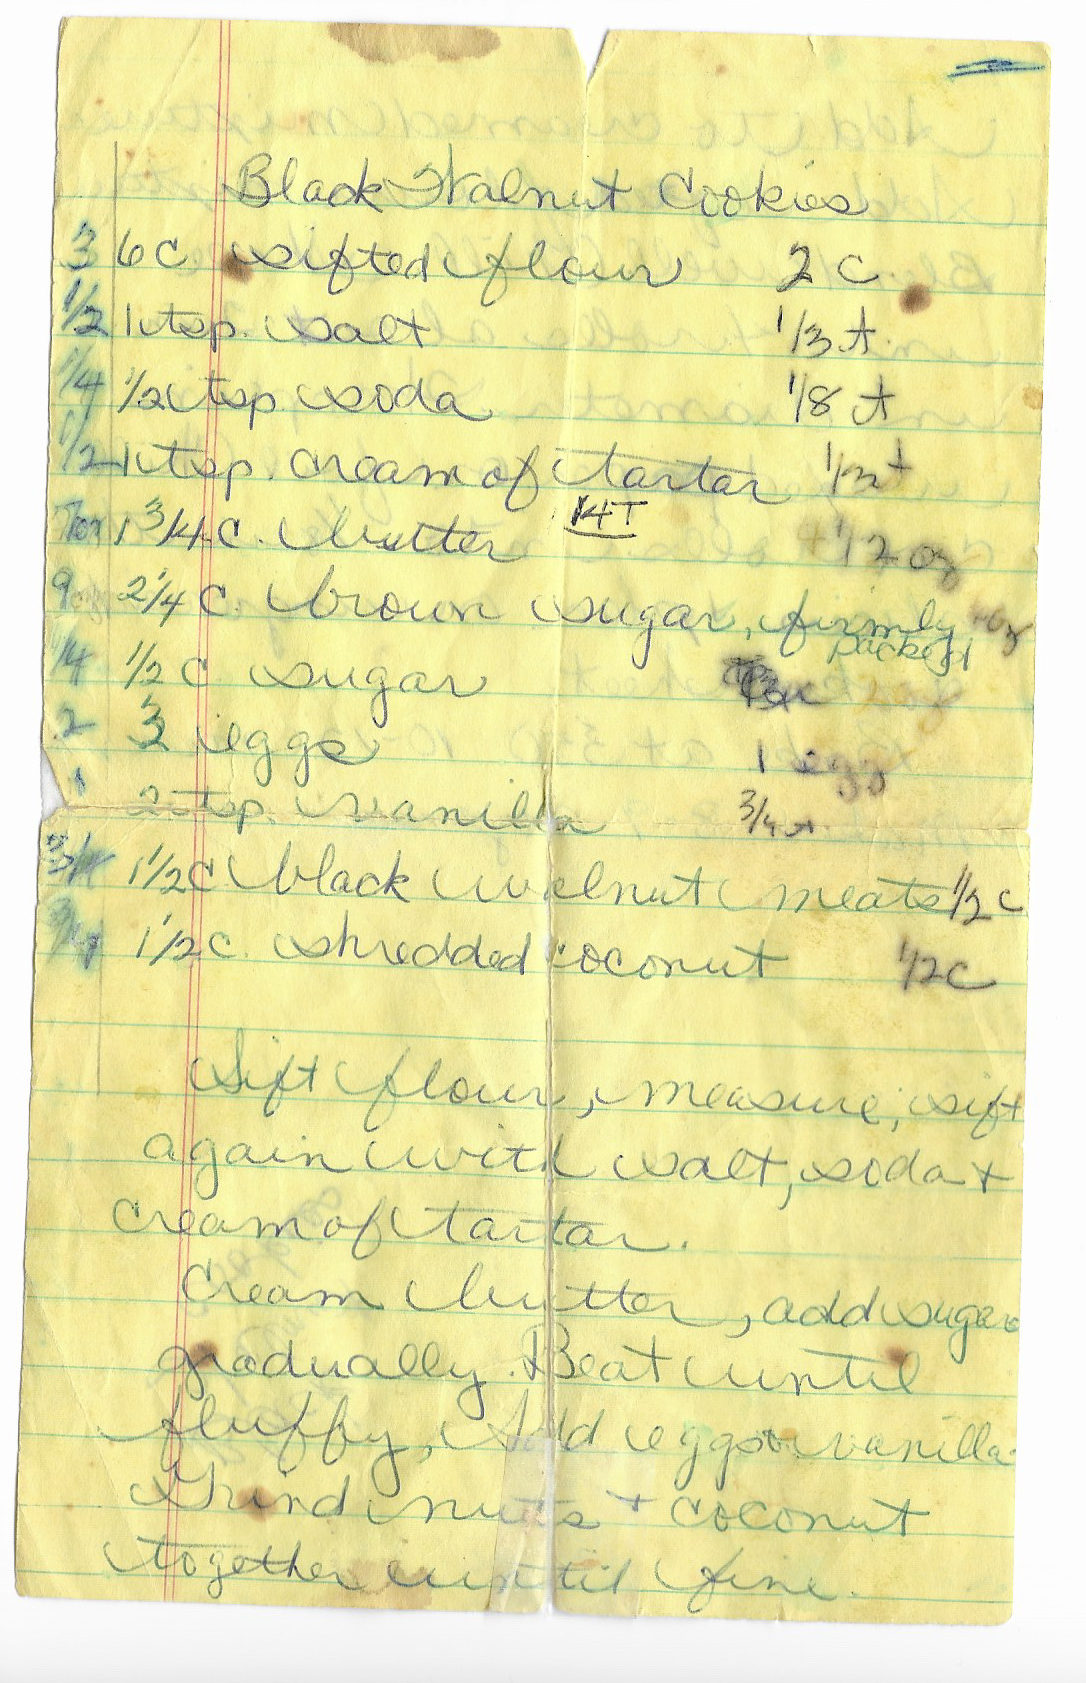 Black Walnut Cookies
3 6 C sifted flour 2 C.
1/2 1 tsp. salt 1/3 t.
1/4 1/2 tsp soda 1/8 t
1/2 1 tsp. cream of tartar 1/3 t
14T
7oz 1 3/4 C. butter 1/2 oz
9 2 1/4 C. brown sugar, firmly oz
packed
1/4 1/2 C sugar
2 3 eggs 1 egg
1 2 tsp. vanilla 3/4 t.
3/4 1 1/2 C. black walnut meats 1/2 C
3/4 1 1/2 C. shredded coconut 1/2 C
Sift flour, measure, sift
again with salt, soda +
cream of tartar.
Cream butter, add sugar
gradually. Beat until
fluffy, Add eggs + vanilla.
Grind nuts + coconut
together until fine.